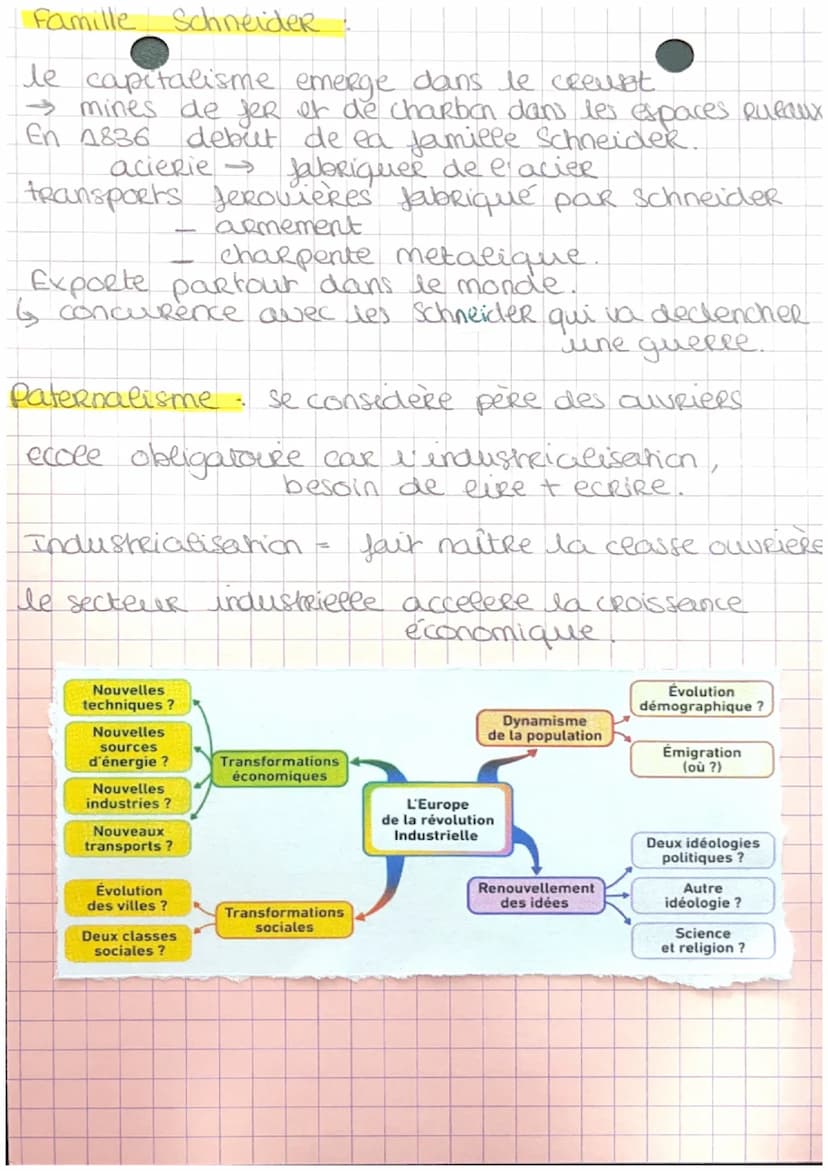 Famille Schneider :
le capitalisme emerge dans le creusot
→ mines de fer et de charbon dans les espaces ruraux
En 1836 debut de la famille Schneider.
acierie → fabriquer de l'acier
transports ferouières fabriqué par schneider
– armement
– charpente metalique.
Exporte partout dans le monde.
↳ concurence avec les Schneider qui va declencher
une guerre.
Paternalisme : se considère père des ouvriers
ecole obligatoire car l'industrialisation,
besoin de lire + ecrire.
Industrialisation = fait naître la classe ouvrière
le secteur industrielle accelere la croissance
économique.
Nouvelles
techniques ?
Nouvelles
sources
d'énergie ?
Nouvelles
industries ?
Nouveaux
transports ?
Transformations
économiques
Évolution
des villes ?
Deux classes
sociales ?
Transformations
sociales
L'Europe
de la révolution
Industrielle
Dynamisme
de la population
Évolution
démographique ?
Émigration
(où ?)
Renouvellement
des idées
Deux idéologies
politiques ?
Autre
idéologie ?
Science
et religion ?